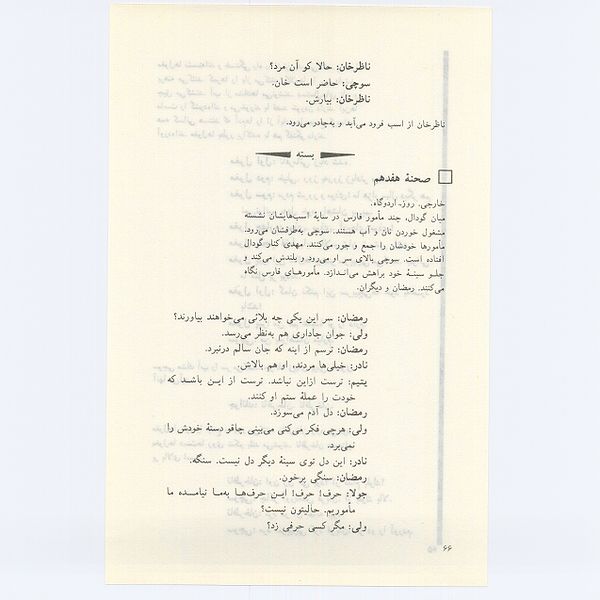 ناظرخان: حالا کو آن مرد؟
سوچی: حاضر است خان.
ناظرخان: بیارش.
ناظرخان از اسب فرود می‌آید و به‌چادر می‌رود.
بسته
صحنهٔ هفدهم
خارجی. روز. اردوگاه.
میان گودال، چند مأمور فارس در سایهٔ اسب‌هایشان نشسته
مشغول خوردن نان و آب هستند. سوچی به‌طرفشان می‌رود.
مأمورها خودشان را جمع و جور می‌کنند. مهدی کنار گودال
افتاده است. سوچی بالای سر او می‌رود و بلندش می‌کند و
جلـو سینـهٔ خود براهش می‌انـدازد. مأمورهـای فارس نگاه
می‌کنند. رمضان و دیگران.
رمضان: سر این یکی چه بلائی می‌خواهند بیاورند؟
ولی: جوان جاداری هم به‌نظر می‌رسد.
رمضان: ترسم از اینه که جان سالم درنبرد.
نادر: خیلی‌ها مردند، او هم بالاش.
یتیم: ترست ازاین نباشد. ترست از ایـن باشـد که
خودت را عملهٔ ستم او کنند.
رمضان: دل آدم می‌سوزد.
ولی: هرچی فکر می‌کنی می‌بینی چاقو دستهٔ خودش را
نمی‌برد.
نادر: این دل توی سینهٔ دیگر دل نیست. سنگه.
رمضان: سنگی پرخون.
جولا: حرف! حرف! ایـن حرف‌هـا به‌مـا نیامـده ما
مأموریم. حالیتون نیست؟
ولی: مگر کسی حرفی زد؟
۶۶